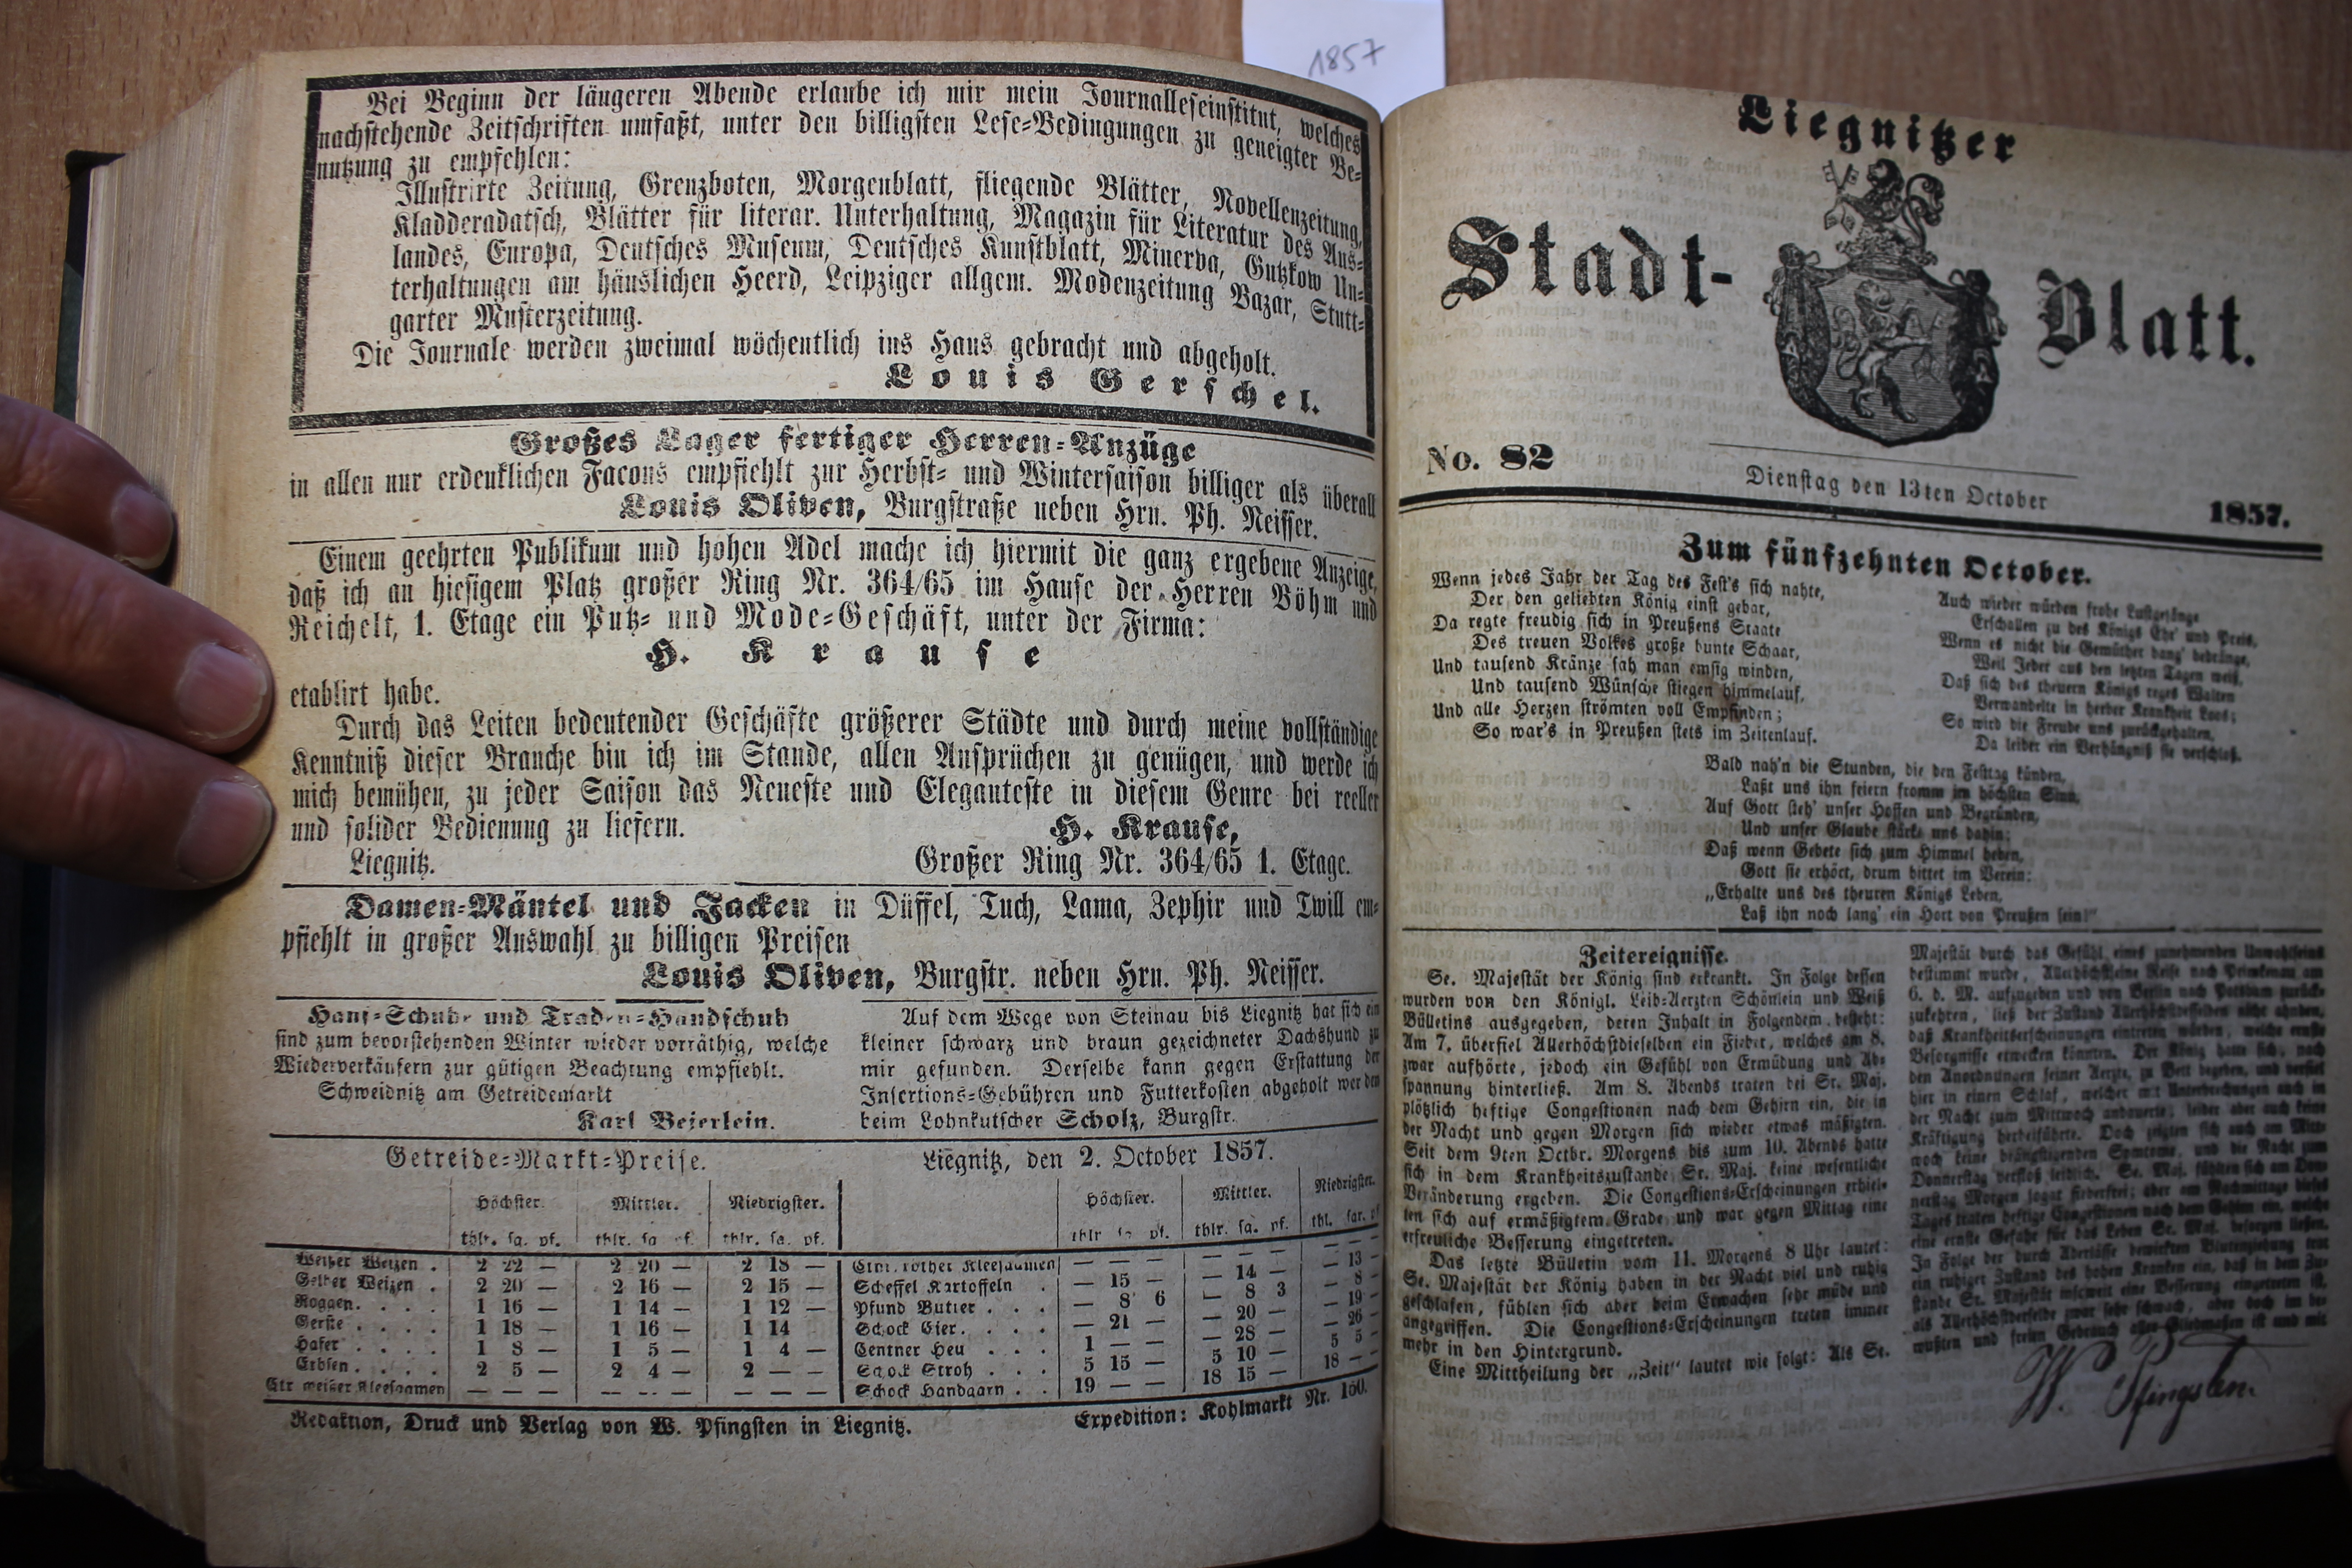 1857
Bei Beginn der längeren Abende erlaube ich mir mein Journalleseinstitut, welches
nachstehende Zeitschriften umfaßt, unter den billigsten Lese-Bedingungen zu geneigter Be-
nutzung zu empfehlen:
Illustrirte Zeitung, Grenzboten, Morgenblatt, fliegende Blätter, Novellenzeitung,
Kladderadatsch, Blätter für literar. Unterhaltung, Magazin für Literatur des Aus-
landes, Europa, Deutsches Museum, Deutsches Kunstblatt, Minerva, Gutzkow Un-
terhaltungen am häuslichen Heerd, Leipziger allgem. Modenzeitung Bazar, Stutt-
garter Musterzeitung.
Die Journale werden zweimal wöchentlich ins Haus gebracht und abgeholt.
Louis Gerschel.
Großes Lager fertiger Herren-Anzüge
in allen nur erdenklichen Facons empfiehlt zur Herbst- und Wintersaison billiger als überall
Louis Oliven, Burgstraße neben Hrn. Ph. Neisser.
Einem geehrten Publikum und hohen Adel mache ich hiermit die ganz ergebene Anzeige,
daß ich an hiesigem Platz großer Ring Nr. 364/65 im Hause der Herren Böhm und
Reichelt, 1. Etage ein Putz- und Mode-Geschäft, unter der Firma:
H. Krause
etablirt habe.
Durch das Leiten bedeutender Geschäfte größerer Städte und durch meine vollständige
Kenntniß dieser Branche bin ich im Stande, allen Ansprüchen zu genügen, und werde ich
mich bemühen, zu jeder Saison das Neueste und Eleganteste in diesem Genre bei reeller
und solider Bedienung zu liefern.
H. Krause,
Liegnitz.
Großer Ring Nr. 364/65 1. Etage.
Damen-Mäntel und Jacken in Düffel, Tuch, Lama, Zephir und Twill em-
pfiehlt in großer Auswahl zu billigen Preisen
Louis Oliven, Burgstr. neben Hrn. Ph. Neisser.
Hanf-Schuhe und Handschuh
sind zum bevorstehenden Winter wieder vorräthig, welche
Wiederverkäufern zur gütigen Beachtung empfiehlt.
Schweidnitz am Getreidemarkt
Karl Beierlein.
Auf dem Wege von Steinau bis Liegnitz hat sich ein
kleiner schwarz und braun gezeichneter Dachshund zu
mir gefunden. Derselbe kann gegen Erstattung der
Insertions-Gebühren und Futterkosten abgeholt werden
beim Lohnkutscher Scholz, Burgstr.
Getreide-Markt-Preise. Liegnitz, den 2. October 1857.
Höchster. Mittler. Niedrigster. Höchster. Mittler. Niedrigster.
thlr. sg. pf. thlr. sg. pf. thlr. sg. pf. thlr. sg. pf. thlr. sg. pf. thl. sgr. pf
Weißer Weizen . 2 22 — 2 20 — 2 18 — Ctnr. rother Kleesaamen — — — — — — — — —
Gelber Weizen . 2 20 — 2 16 — 2 15 — Scheffel Kartoffeln . — 15 — — 14 — — 13 —
Roggen. . . . 1 16 — 1 14 — 1 12 — Pfund Butter . . . — 8 6 — 8 3 — 8 —
Gerste . . . . 1 18 — 1 16 — 1 14 Schock Eier. . . . — 21 — — 20 — — 19 —
Hafer . . . . 1 8 — 1 5 — 1 4 — Centner Heu . . . 1 — — — 28 — — 26 —
Erbsen. . . . 2 5 — 2 4 — 2 — — Schock Stroh . . . 5 15 — 5 10 — 5 5 —
Ctr weißer Kleesaamen — — — — — — — — — Schock Handgarn . . 19 — — 18 15 — 18 — —
Redaktion, Druck und Verlag von W. Pfingsten in Liegnitz. Expedition: Kohlmarkt Nr. 160.
Liegnitzer
Stadt-Blatt.
No. 82 Dienstag den 13ten October 1857.
Zum fünfzehnten October.
Wenn jedes Jahr der Tag des Fest's sich nahte,
Der den geliebten König einst gebar,
Da regte freudig sich in Preußens Staate
Des treuen Volkes große bunte Schaar,
Und tausend Kränze sah man emsig winden,
Und tausend Wünsche stiegen himmelauf,
Und alle Herzen strömten voll Empfinden;
So war's in Preußen stets im Zeitenlauf.
Auch wieder würden frohe Lustgesänge
Erschallen zu des Königs Ehr' und Preis,
Wenn es nicht die Gemüther bang' bedränge,
Weil Jeder aus den letzten Tagen weiß,
Daß sich des theuern Königs reges Walten
Verwandelte in herber Krankheit Loos;
So wird die Freude uns zurückgehalten,
Da leider ein Verhängniß sie verschloß.
Bald nah'n die Stunden, die den Festtag künden,
Laßt uns ihn feiern fromm im höchsten Sinn,
Auf Gott steh' unser Hoffen und Begründen,
Und unser Glaube stärke uns dahin:
Daß wenn Gebete sich zum Himmel heben,
Gott sie erhört, drum bittet im Verein:
„Erhalte uns des theuren Königs Leben,
Laß ihn noch lang' ein Hort von Preußen sein!"
Zeitereignisse.
Se. Majestät der König sind erkrankt. In Folge dessen
wurden von den Königl. Leib-Aerzten Schönlein und Weiß
Bülletins ausgegeben, deren Inhalt in Folgendem besteht:
Am 7. überfiel Allerhöchstdieselben ein Fieber, welches am 8.
zwar aufhörte, jedoch ein Gefühl von Ermüdung und Ab-
spannung hinterließ. Am 8. Abends traten bei Sr. Maj.
plötzlich heftige Congestionen nach dem Gehirn ein, die in
der Nacht und gegen Morgen sich wieder etwas mäßigten.
Seit dem 9ten Octbr. Morgens bis zum 10. Abends hatte
sich in dem Krankheitszustande Sr. Maj. keine wesentliche
Veränderung ergeben. Die Congestions-Erscheinungen erhiel-
ten sich auf ermäßigtem Grade und war gegen Mittag eine
erfreuliche Besserung eingetreten.
Das letzte Bülletin vom 11. Morgens 8 Uhr lautet:
Se. Majestät der König haben in der Nacht viel und ruhig
geschlafen, fühlen sich aber beim Erwachen sehr müde und
angegriffen. Die Congestions-Erscheinungen treten immer
mehr in den Hintergrund.
Eine Mittheilung der „Zeit" lautet wie folgt: Als Se.
Majestät durch das Gefühl eines zunehmenden Unwohlseins
bestimmt wurde, Allerhöchstseine Reise nach Primkenau am
6. d. M. aufzugeben und von Berlin nach Potsdam zurück-
zukehren, ließ der Zustand Allerhöchstdesselben nicht ahnden,
daß Krankheitserscheinungen eintreten würden, welche ernste
Besorgnisse erwecken könnten. Der König hatte sich, nach
den Anordnungen seiner Aerzte, zu Bett begeben, und verfiel
hier in einen Schlaf, welcher mit Unterbrechungen auch in
der Nacht zum Mittwoch andauerte; leider aber auch keine
Kräftigung herbeiführte. Doch zeigten sich auch am Mitt-
woch keine beängstigenden Symtome, und die Nacht zum
Donnerstag verfloß leidlich. Se. Maj. fühlten sich am Don-
nerstag Morgen sogar fieberfrei; aber am Nachmittage dieses
Tages traten heftige Congestionen nach dem Gehirn ein, welche
eine ernste Gefahr für das Leben Sr. Maj. besorgen ließen.
In Folge der durch Aderlässe bewirkten Blutentziehung trat
ein ruhiger Zustand des hohen Kranken ein, daß in dem Zu-
stande Sr. Majestät insoweit eine Besserung eingetreten ist,
als Allerhöchstderselbe zwar sehr schwach, aber doch im be-
wußten und freien Gebrauch aller Gliedmaßen ist und mit
W. Pfingsten.